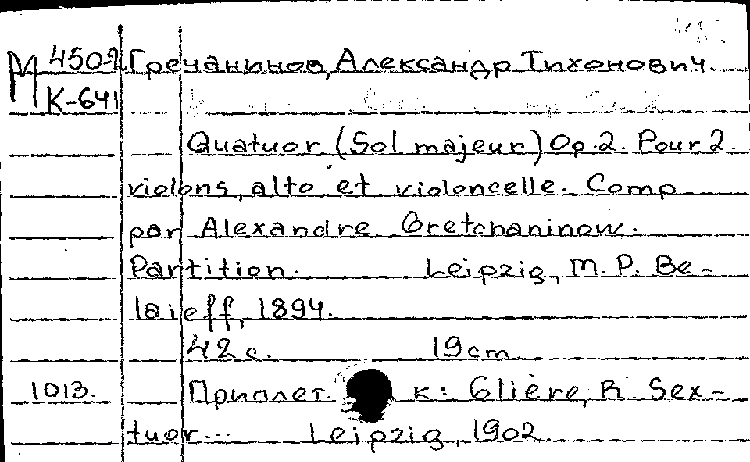 М 4509 Гречанинов, Александр Тихонович.
К-641
Quatuor (Sol majeur) Op.2. Pour 2
violons, alto et violoncelle. Comp
par Alexandre Gretchaninow.
Partition. Leipzig, M. P. Be-
laieff, 1894.
42 с. 19 cm
1013. Приплет. к: Glière, R. Sex-
tuor... Leipzig, 1902